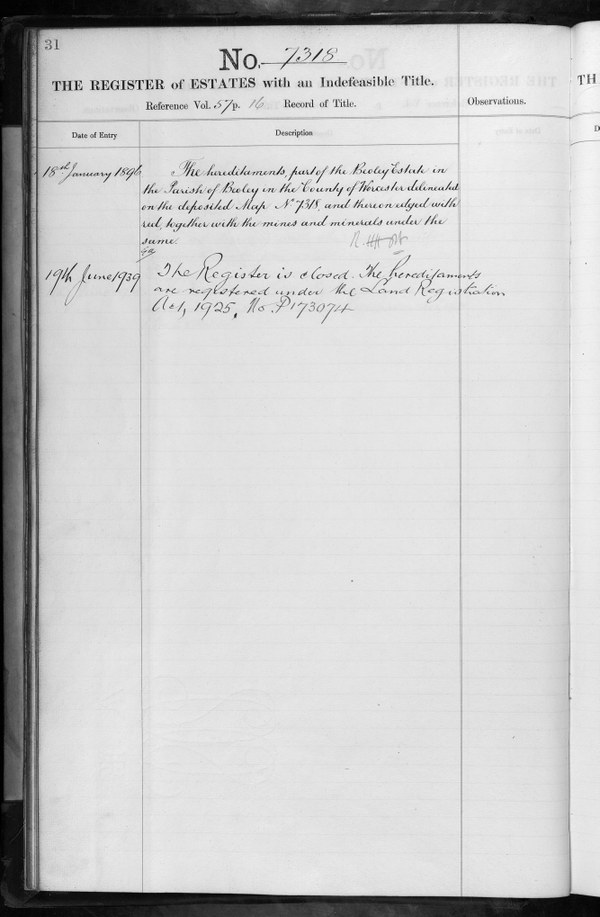 31
No. 7318
THE REGISTER of ESTATES with an Indefeasible Title.
Reference Vol. 57 p. 16 Record of Title.
Observations.
Date of Entry
Description
18th January 1896
The hereditaments, part of the Beoley Estate in
the Parish of Beoley in the County of Worcester delineated
on the deposited Map No 7318, and thereon edged with
red, together with the mines and minerals under the
same.
19th June 1939
The Register is closed. The hereditaments
are registered under the Land Registration
Act, 1925, No P173074
TH
D